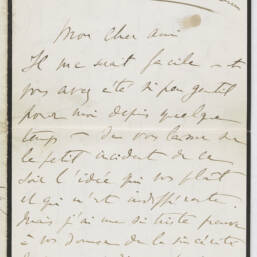 Mon cher ami
Il me serait facile – et
vous avez été si peu gentil
pour moi depuis quelque
temps – de vous laisser de
le petit incident de ce
soir l'idée qui vous plaît
et qui m'est indifférente.
Mais j'ai une si triste preuve
à vous donner de la sincérité